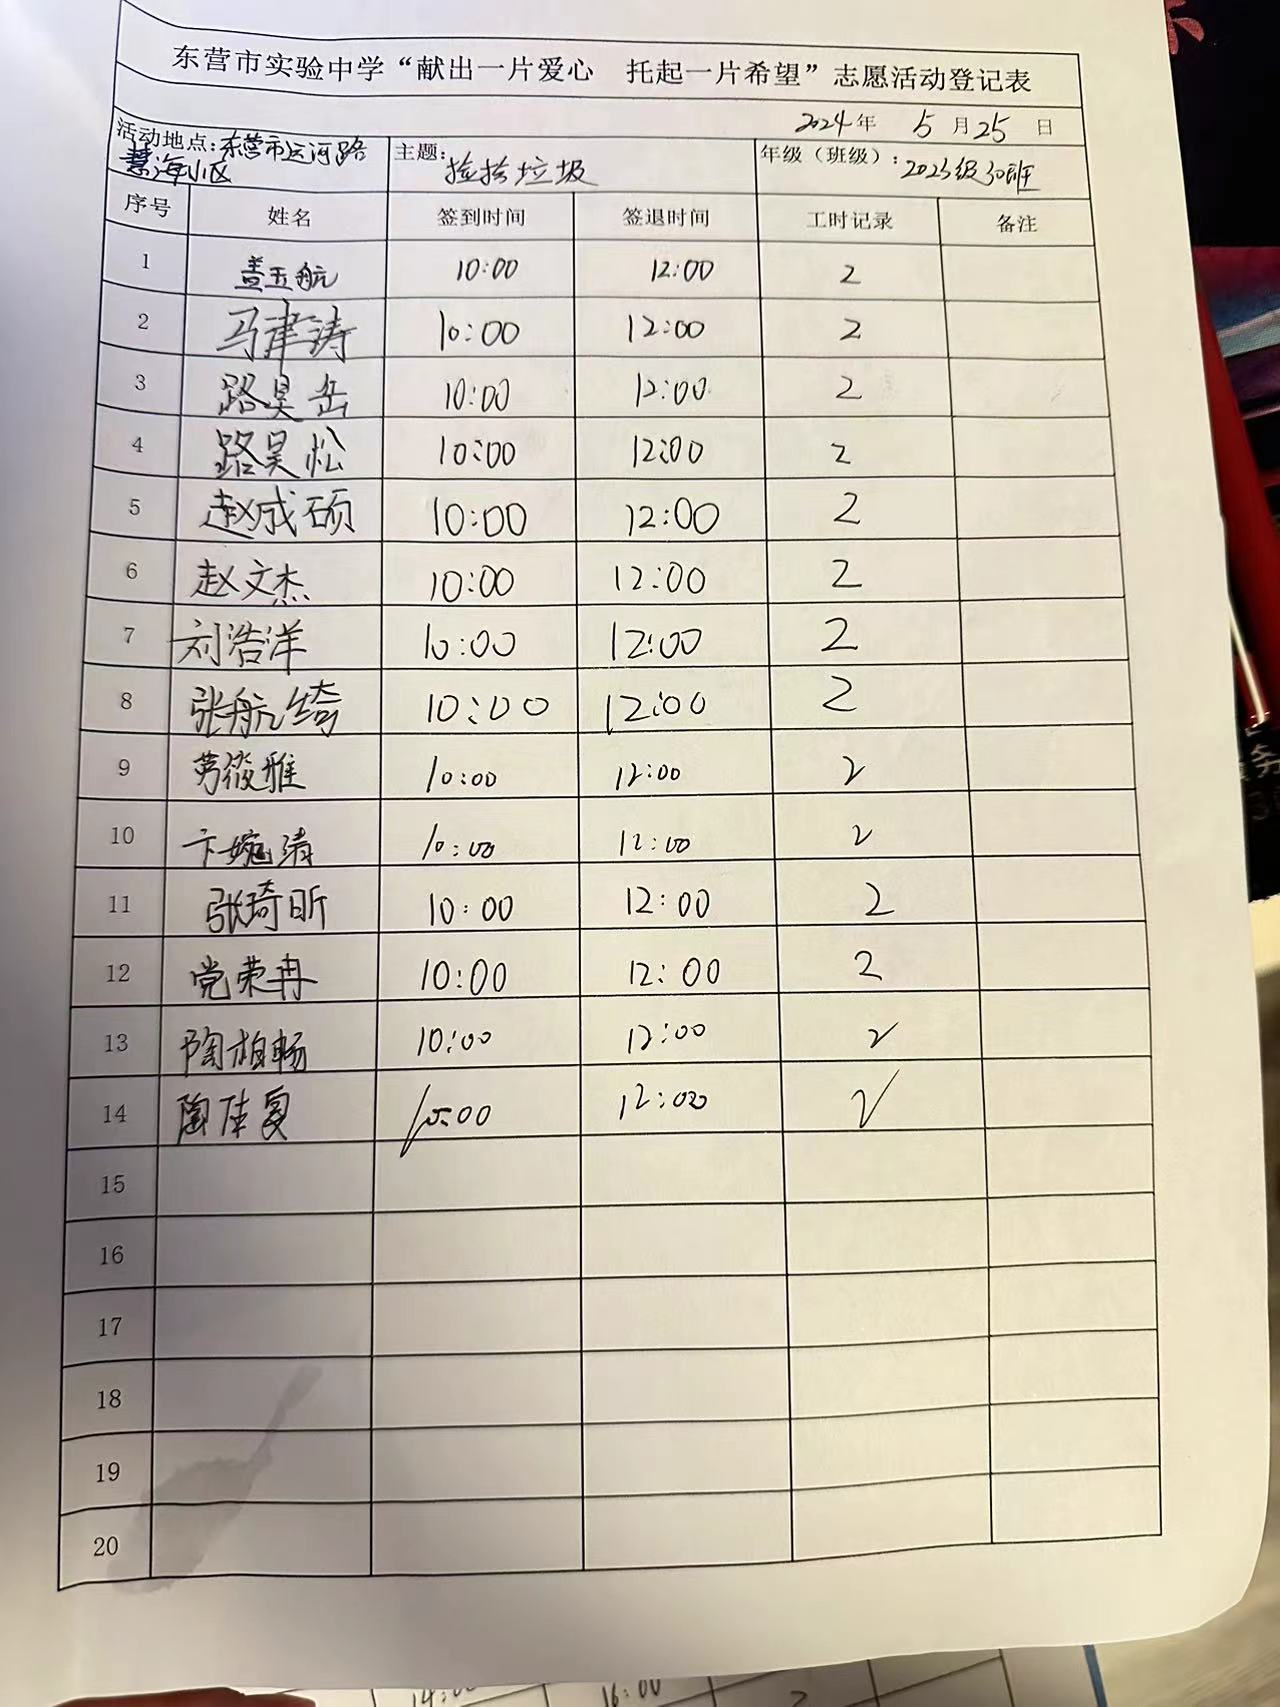 东营市实验中学“献出一片爱心 托起一片希望”志愿活动登记表
2024年 5 月 25 日
活动地点:东营市运河路 慧海小区 主题:捡拾垃圾 年级（班级）:2023级30班
序号 姓名 签到时间 签退时间 工时记录 备注
1 盖玉航 10:00 12:00 2
2 马聿涛 10:00 12:00 2
3 路昊岳 10:00 12:00 2
4 路昊松 10:00 12:00 2
5 赵成硕 10:00 12:00 2
6 赵文杰 10:00 12:00 2
7 刘浩洋 10:00 12:00 2
8 张航绮 10:00 12:00 2
9 筱雅 10:00 12:00 2
10 卞婉清 10:00 12:00 2
11 张琦昕 10:00 12:00 2
12 党荣冉 10:00 12:00 2
13 陶柏畅 10:00 12:00 2
14 陶佳 10:00 12:00 2
15
16
17
18
19
20
16:00
务